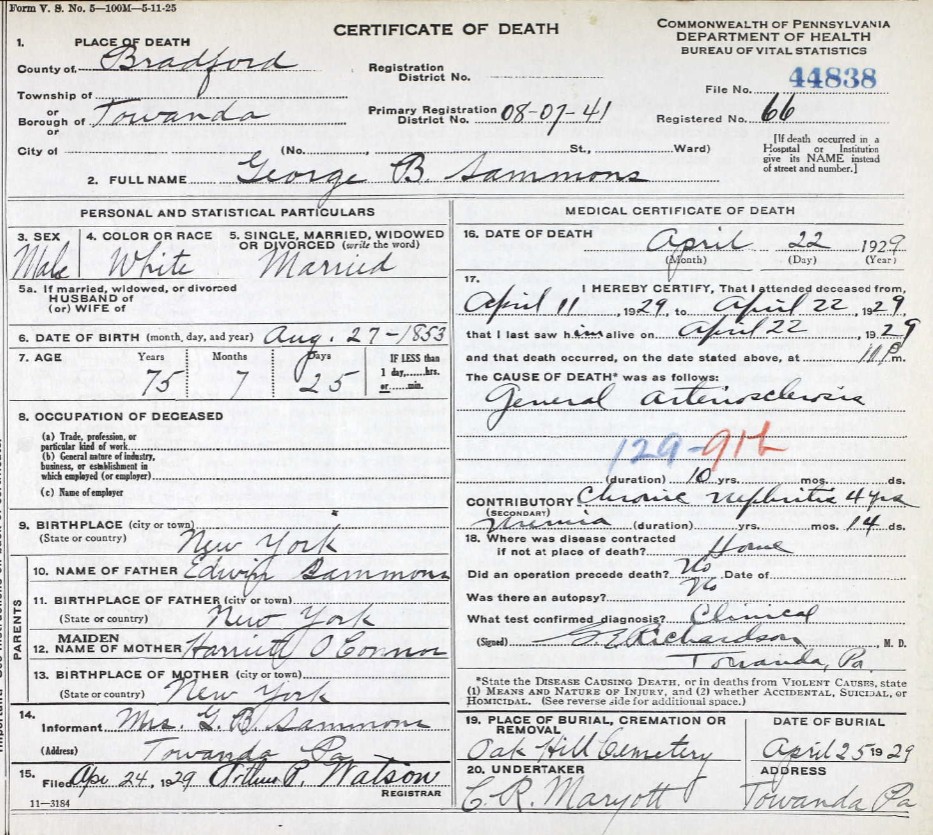 Form V. S. No. 5—100M—5-11-25
CERTIFICATE OF DEATH
COMMONWEALTH OF PENNSYLVANIA
DEPARTMENT OF HEALTH
BUREAU OF VITAL STATISTICS
1. PLACE OF DEATH
County of Bradford
Registration District No.
File No. 44838
Township of
or
Borough of Towanda
or
Primary Registration District No. 08-07-41
Registered No. 66
City of (No. St., Ward)
[If death occurred in a Hospital or Institution give its NAME instead of street and number.]
2. FULL NAME George B. Sammons
PERSONAL AND STATISTICAL PARTICULARS
3. SEX Male
4. COLOR OR RACE White
5. SINGLE, MARRIED, WIDOWED OR DIVORCED (write the word) Married
5a. If married, widowed, or divorced
HUSBAND of
(or) WIFE of
6. DATE OF BIRTH (month, day, and year) Aug. 27-1853
7. AGE Years Months Days IF LESS than
75 7 25 1 day, hrs. or min.
8. OCCUPATION OF DECEASED
(a) Trade, profession, or
particular kind of work
(b) General nature of industry,
business, or establishment in
which employed (or employer)
(c) Name of employer
9. BIRTHPLACE (city or town)
(State or country) New York
PARENTS
10. NAME OF FATHER Edwin Sammons
11. BIRTHPLACE OF FATHER (city or town)
(State or country) New York
12. MAIDEN NAME OF MOTHER Harriett O Connor
13. BIRTHPLACE OF MOTHER (city or town)
(State or country) New York
14.
Informant Mrs. G. B. Sammons
(Address) Towanda Pa
15. Filed Apr 24, 1929 P. Watson
REGISTRAR
11—3184
MEDICAL CERTIFICATE OF DEATH
16. DATE OF DEATH April 22 1929
(Month) (Day) (Year)
17. I HEREBY CERTIFY, That I attended deceased from,
April 11, 1929, to April 22, 1929,
that I last saw him alive on April 22, 1929
and that death occurred, on the date stated above, at m.
The CAUSE OF DEATH* was as follows:
General Arteriosclerosis
129-91b
(duration) 10 yrs. mos. ds.
CONTRIBUTORY Chronic Nephritis 4 yrs
(SECONDARY)
Uremia (duration) yrs. mos. 14 ds.
18. Where was disease contracted
if not at place of death? Home
Did an operation precede death? No Date of
Was there an autopsy? No
What test confirmed diagnosis? Clinical
(Signed) Richardson, M. D.
Towanda, Pa.
*State the DISEASE CAUSING DEATH, or in deaths from VIOLENT CAUSES, state
(1) MEANS AND NATURE OF INJURY, and (2) whether ACCIDENTAL, SUICIDAL, or
HOMICIDAL. (See reverse side for additional space.)
19. PLACE OF BURIAL, CREMATION OR REMOVAL
Oak Hill Cemetery
DATE OF BURIAL
April 25 1929
20. UNDERTAKER
C. R. Maryott
ADDRESS
Towanda Pa